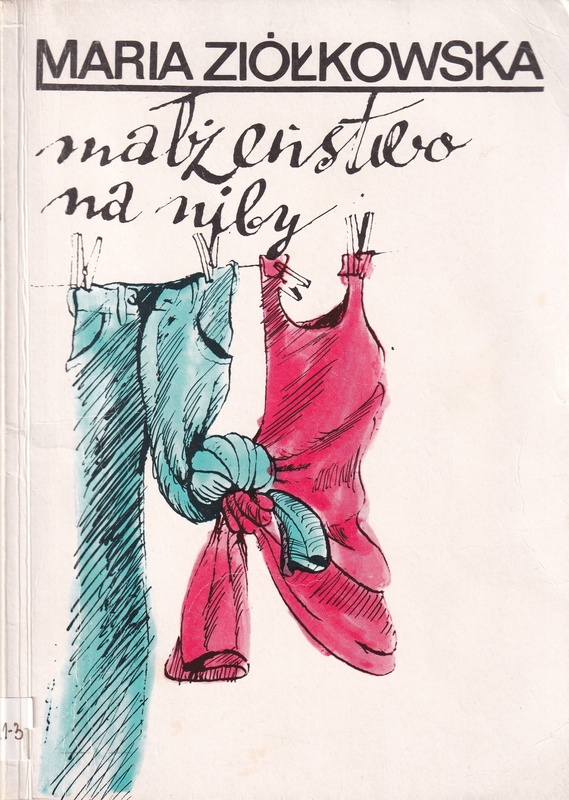 MARIA ZIÓŁKOWSKA
małżeństwo
na niby
1-3